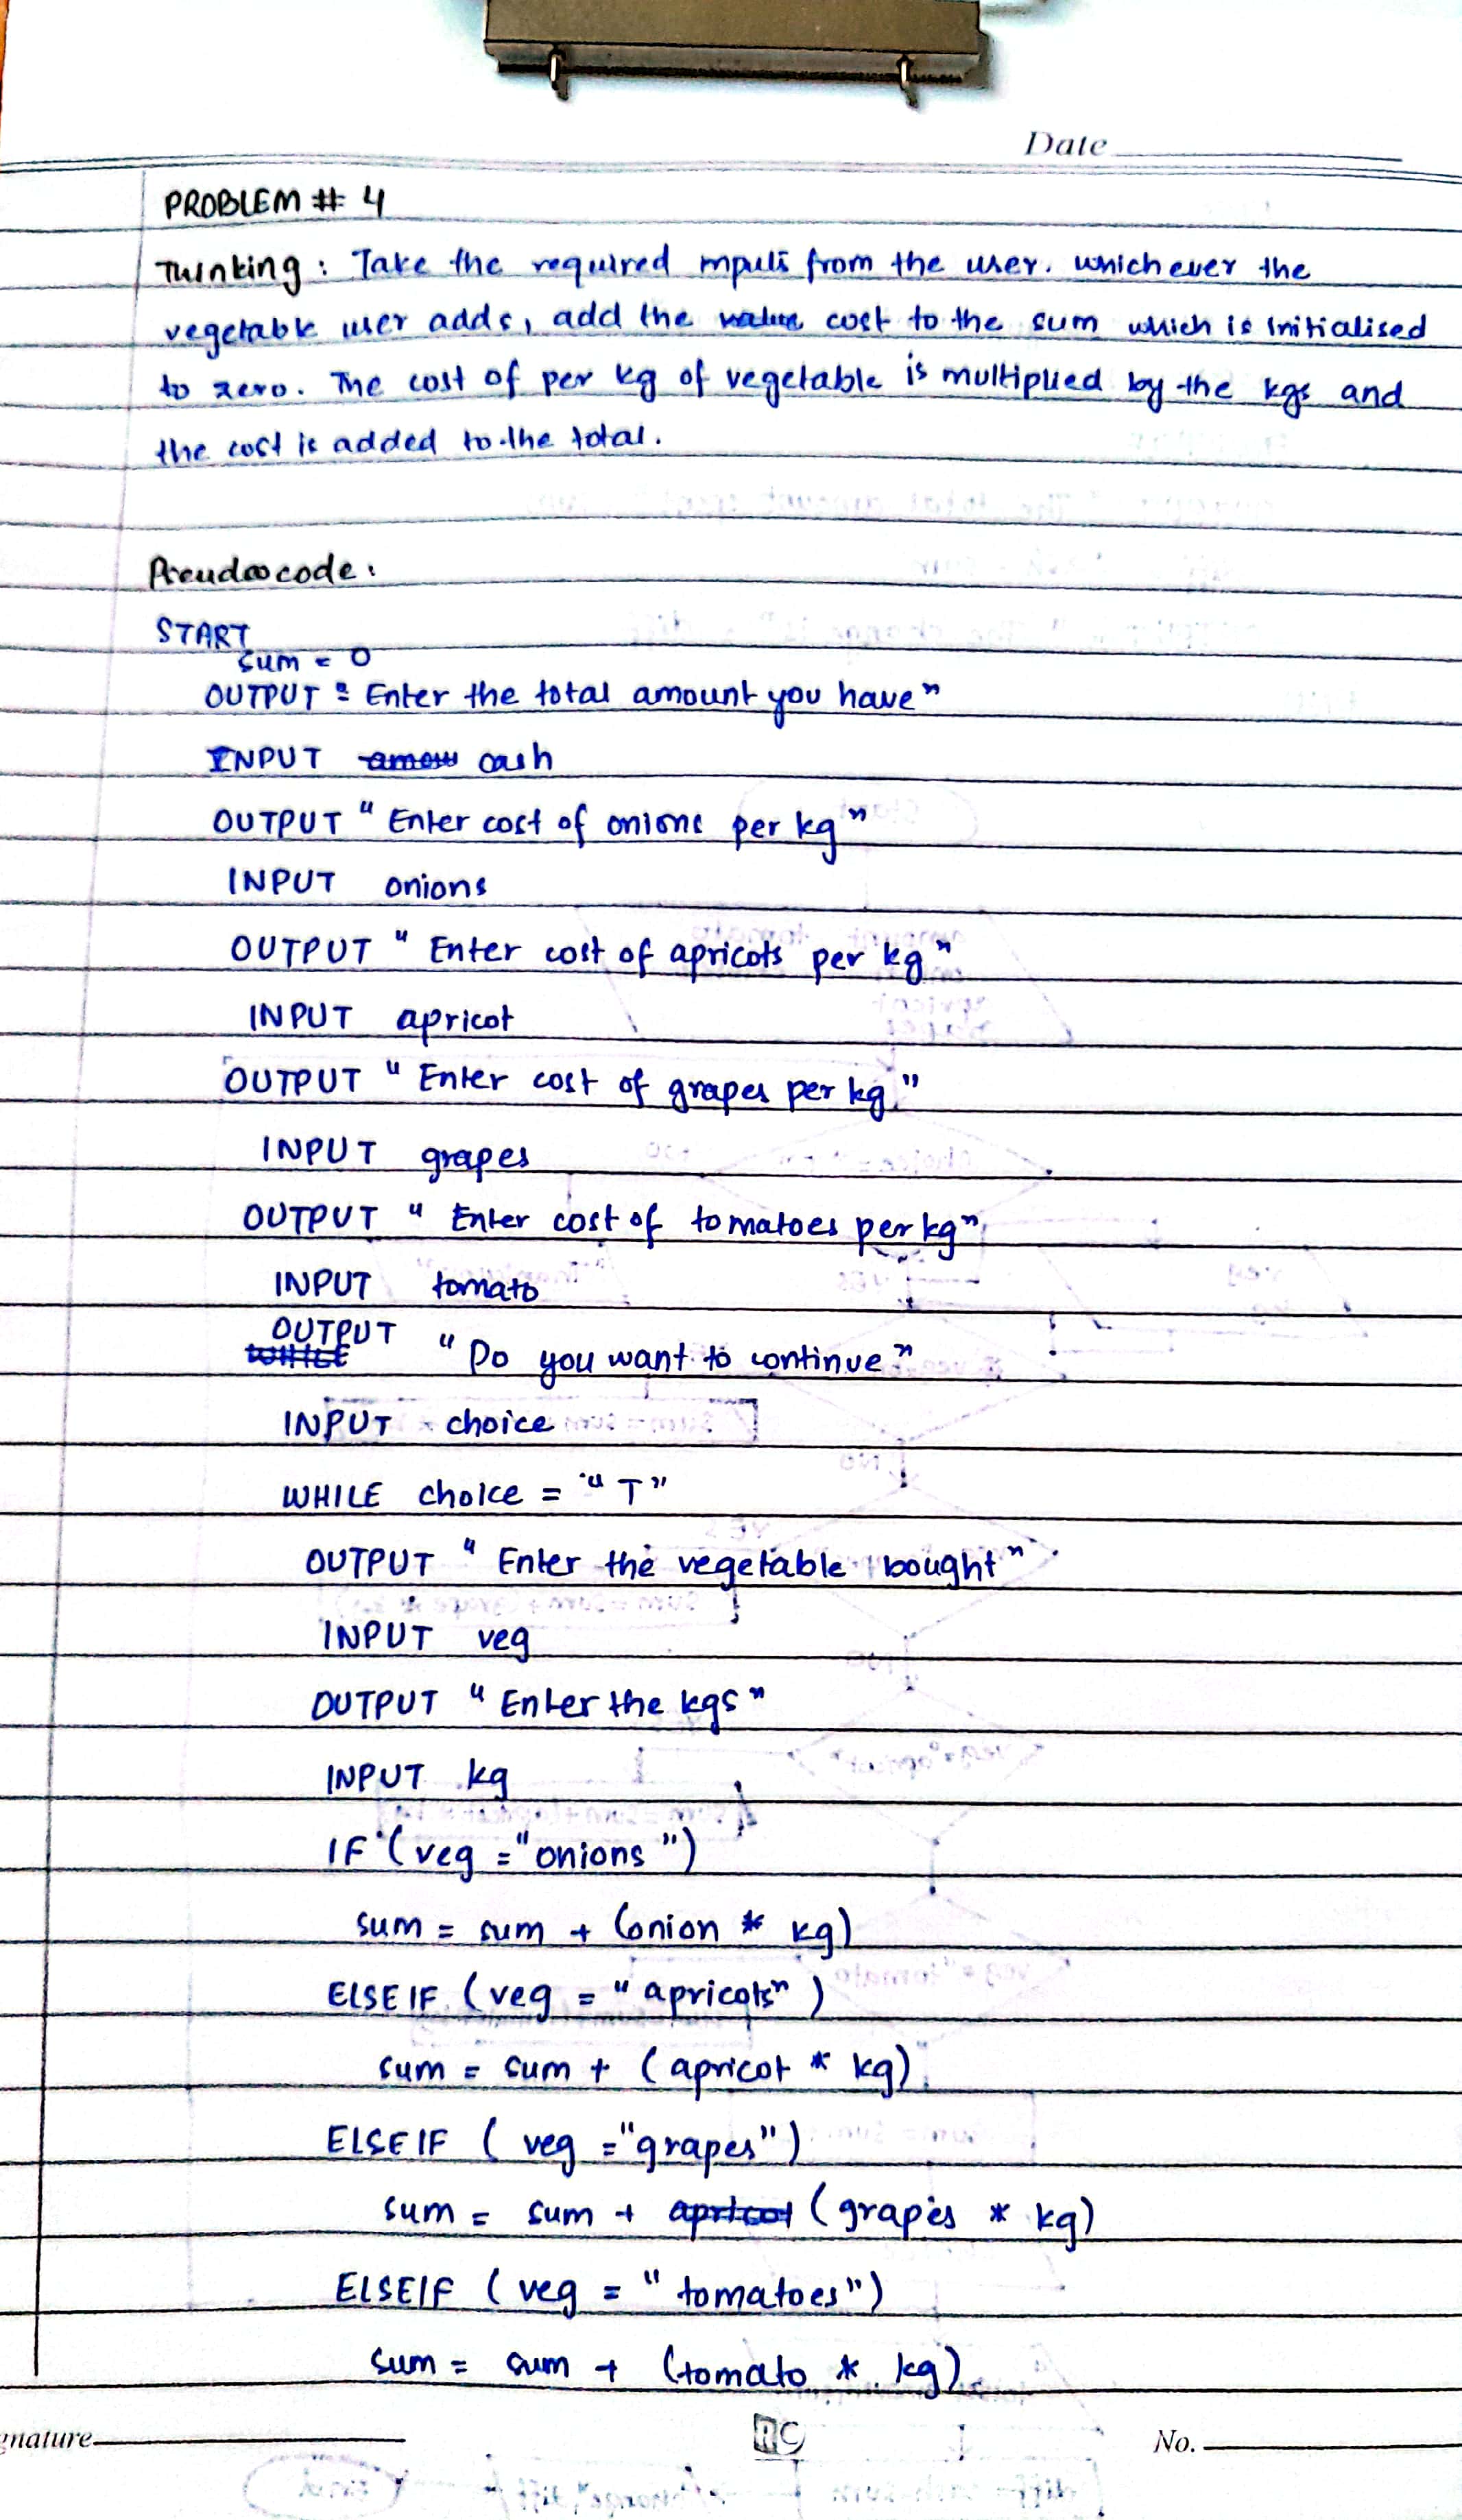 Date
PROBLEM # 4
Thinking : Take the required inputs from the user. whichever the
vegetable user adds, add the value cost to the sum which is initialised
to zero. The cost of per kg of vegetable is multiplied by the kgs and
the cost is added to the total.
Pseudocode :
START
sum = 0
OUTPUT " Enter the total amount you have "
INPUT amou cash
OUTPUT " Enter cost of onions per kg "
INPUT onions
OUTPUT " Enter cost of apricots per kg "
INPUT apricot
OUTPUT " Enter cost of grapes per kg. "
INPUT grapes
OUTPUT " Enter cost of tomatoes per kg "
INPUT tomato
OUTPUT
WHILE " Do you want to continue "
INPUT choice
WHILE choice = " T "
OUTPUT " Enter the vegetable bought "
INPUT veg
OUTPUT " Enter the kgs "
INPUT kg
IF (veg = "onions ")
sum = sum + (onion * kg)
ELSEIF (veg = " apricots" )
sum = sum + ( apricot * kg)
ELSEIF ( veg ="grapes")
sum = sum + apricot (grapes * kg)
ELSEIF (veg = " tomatoes")
sum = sum + (tomato * kg)
gnature
No.